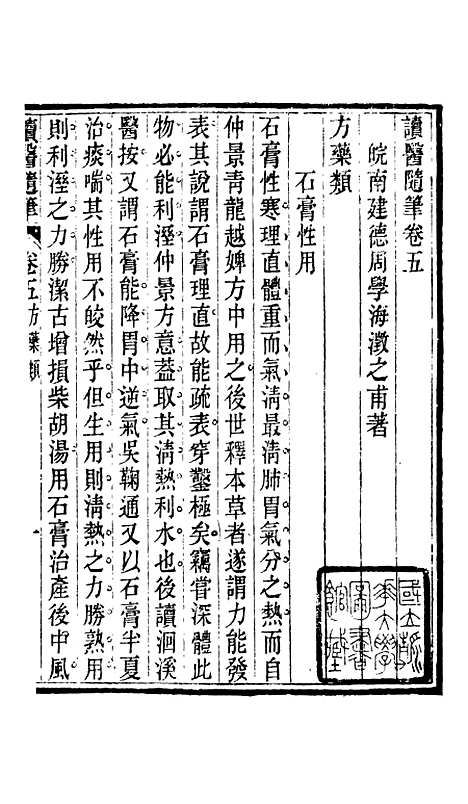 讀醫隨筆卷五
皖南建德周學海澂之甫著
方藥類
石膏性用
石膏性寒理直體重而氣淸最淸肺胃氣分之熱而自
仲景青龍越婢方中用之後世釋本草者遂謂力能發
表其說謂石膏理直故能疏表穿鑿極矣竊嘗深體此
物必能利溼仲景方意蓋取其淸熱利水也後讀洄溪
醫按又謂石膏能降胃中逆氣吳鞠通又以石膏半夏
治痰喘其性用不皎然乎但生用則淸熱之力勝熟用
則利溼之力勝潔古增損柴胡湯用石膏治產後中風
讀醫隨筆 卷五方藥類 一